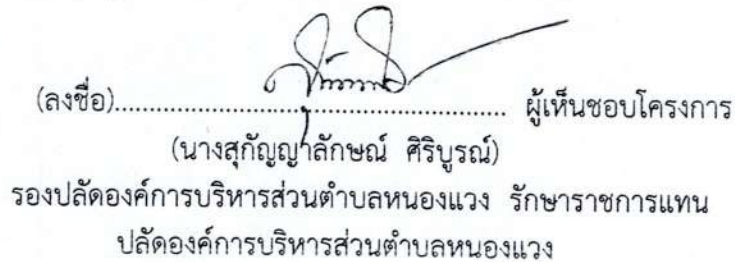 (ลงชื่อ)........................................................ ผู้เห็นชอบโครงการ
(นางสุกัญญาลักษณ์ ศิริบูรณ์)
รองปลัดองค์การบริหารส่วนตำบลหนองแวง รักษาราชการแทน
ปลัดองค์การบริหารส่วนตำบลหนองแวง